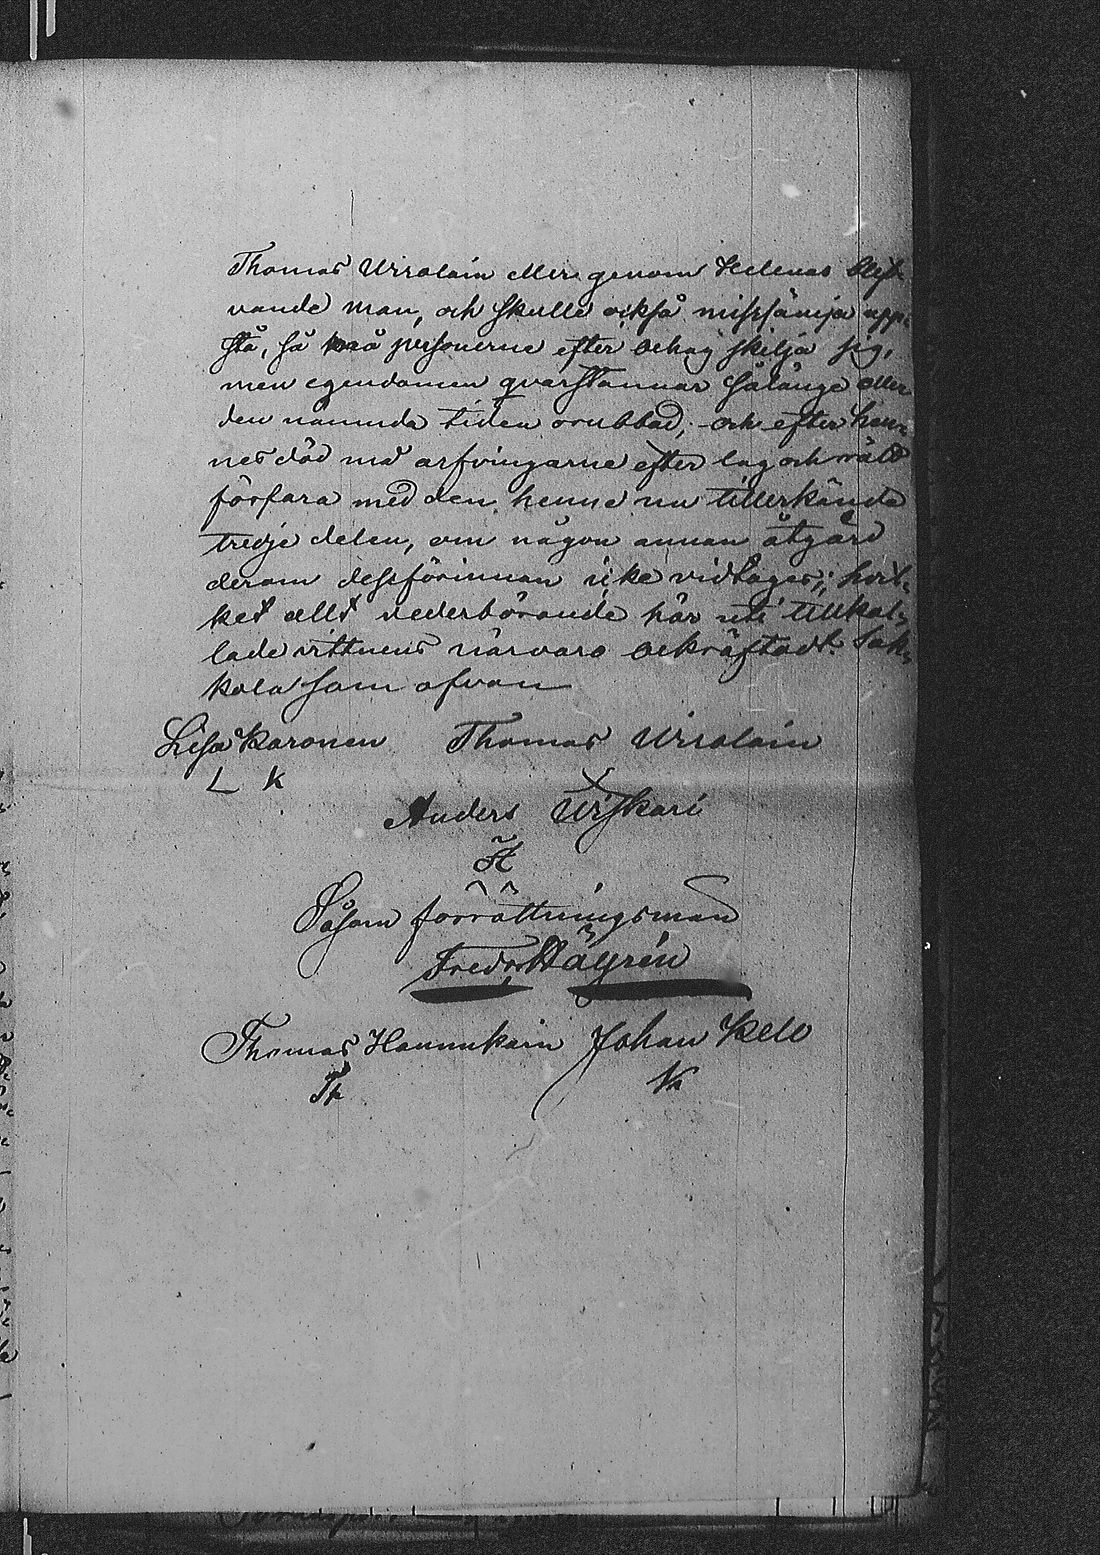 Thomas Virolain eller genom Helenas blif-
vande man, och skulle också missämja upp-
stå, få personerne efter behag skilja sig,
men egendomen qvarstannar sålänge eller
den nämnda tiden orubbad; och efter hen-
nes död må arfvingarne efter lag och rätt
förfara med den henne nu tillerkända
tredje delen, om någon annan åtgärd
derom dessförinnan icke vidtages; hvil-
ket allt vederbörande här uti tillkal-
lade vittnens närvaro bekräftadt. Sak-
kola som ofvan
Lisa Karonen Thomas Virolain
L K
Anders Uiskari
Såsom förrättningsman
Fredr Häyrén
Thomas Hannukain Johan Kelo